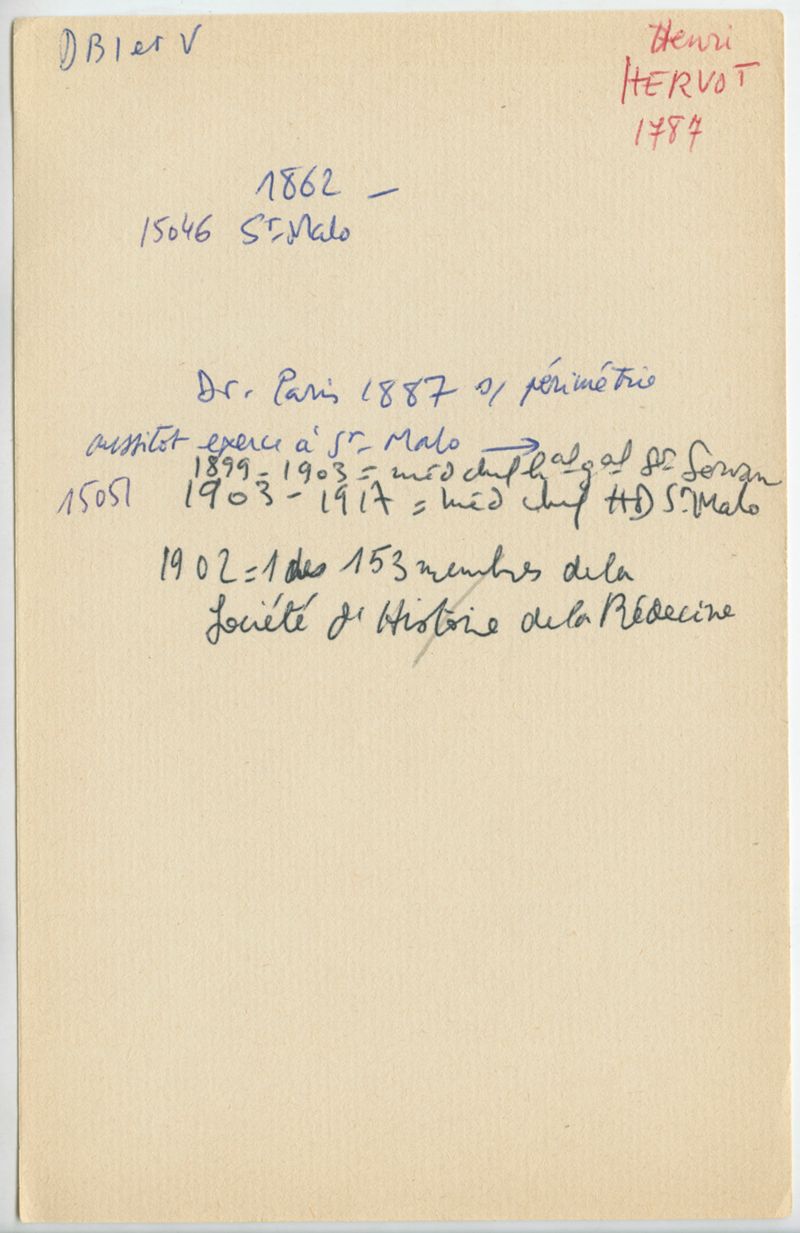 D B I et V
Henri
HERVOT
1787
1862 –
15046 St-Malo
Dr. Paris 1887 s/ périmétrie
aussitôt exerce à St-Malo →
1899-1903 = méd chef hal gal St Servan
15051 1903 - 1917 = méd chef HD St Malo
1902 = 1 des 153 membres de la
Société d'Histoire de la Médecine